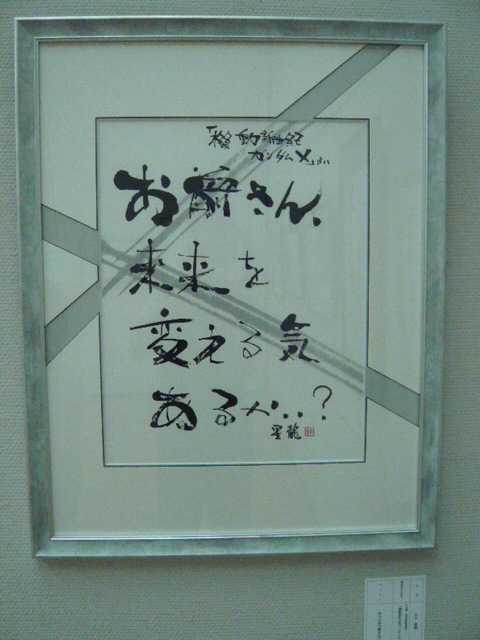 「機動新世紀
ガンダムXより」
お前さん、
未来を
変える気
あるか..?
星龍